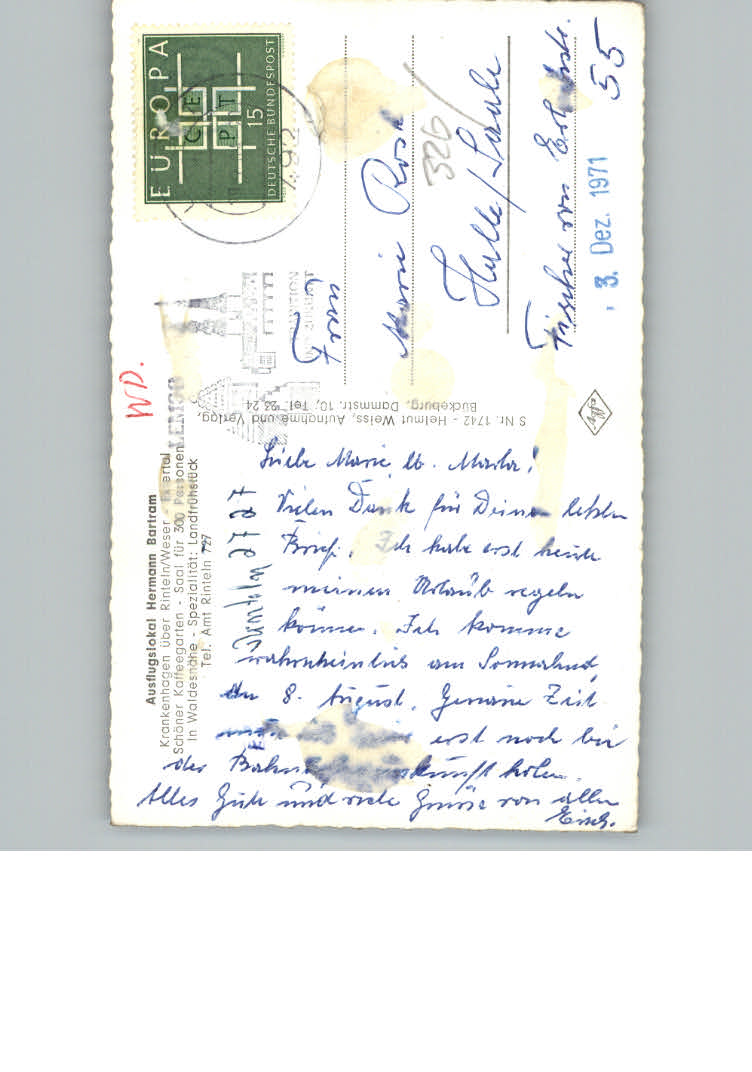 Ausflugslokal Hermann Bartram
Krankenhagen über Rinteln/Weser - Extertal
Schöner Kaffeegarten - Saal für 300 Personen
In Waldesnähe - Spezialität: Landfrühstück
Tel. Amt Rinteln 727
27 27
WD.
Liebe Marie
Vielen Dank für Deinen letzten
Brief. Ich habe erst heute
meinen Urlaub regeln
können. Ich komme
wahrscheinlich am Sonnabend,
den 8. August. Genaue Zeit
erst noch bei
der
holen.
Alles Gute und viele Grüsse von allen
S Nr. 1742 - Helmut Weiss, Aufnahme und Verlag,
Bückeburg, Dammstr. 10, Tel. 23 24
Agfa
EUROPA
CEPT
15
DEUTSCHE BUNDESPOST
Frau
Marie Rosk
326
Halle/Saale
Fischer von
55
3. Dez. 1971